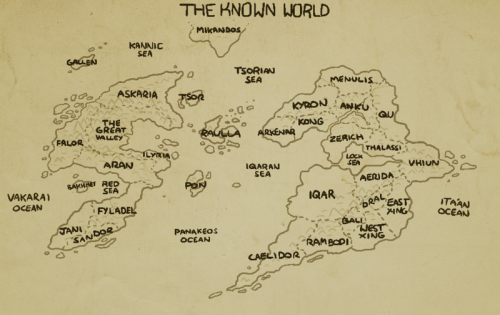 THE KNOWN WORLD
MIKANDOS
KANNIC
SEA
GALLEN
TSORIAN
SEA
MENULIS
ASKARIA
TSOR
KYRON
ANKU
QU
THE
GREAT
VALLEY
KONG
RAULLA
ARKENAR
ZERICH
FALOR
THALASSI
ILYRIA
LOCK
SEA
VHIUN
ARAN
IQARAN
SEA
AERIDA
RED
SEA
PON
IQAR
VAKARAI
OCEAN
DRAL
EAST
XING
ITA'AN
OCEAN
FYLADEL
BALI
JANI
SANDOR
PANAKEOS
OCEAN
WEST
XING
RAMBODI
CAELIDOR